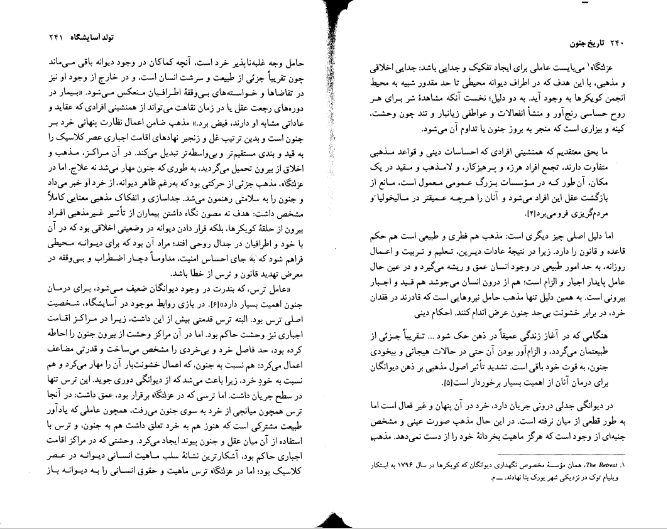 ۲۴۰ تاریخ جنون
عزلتگاه۱ می‌بایست عاملی برای ایجاد تفکیک و جدایی باشد: جدایی اخلاقی
و مذهبی، با این هدف که در اطراف دیوانه محیطی تا حد مقدور شبیه به محیط
انجمن کویکرها به وجود آید. به دو دلیل: نخست آنکه مشاهدهٔ شر برای هر
روح حساسی رنج‌آور و منشأ انفعالات و عواطفی زیانبار و تند چون وحشت،
کینه و بیزاری است که منجر به بروز جنون یا تداوم آن می‌شود.
ما بحق معتقدیم که همنشینی افرادی که احساسات دینی و قواعد مذهبی
متفاوت دارند، تجمع افراد هرزه و پرهیزکار، و لامذهب و مقید در یک
مکان، آن‌طور که در مؤسسات بزرگ عمومی معمول است، مانع از
بازگشت عقل این افراد می‌شود و آنان را هرچه عمیقتر در مالیخولیا و
مردم‌گریزی فرو می‌برد[۴].
اما دلیل اصلی چیز دیگری است: مذهب هم فطری و طبیعی است هم حکم
قاعده و قانون را دارد. زیرا در نتیجهٔ عادات دیرین، تعلیم و تربیت و اعمال
روزانه، به حد امور طبیعی در وجود انسان عمق و ریشه می‌گیرد و در عین حال
عامل پایدار اجبار و الزام است؛ هم از درون انسان می‌جوشد هم قید و اجبار
بیرونی است. به همین دلیل تنها مذهب حامل نیروهایی است که قادرند در فقدان
خرد، در برابر خشونت بی‌حد جنون عرض اندام کنند. احکام دینی
هنگامی که در آغاز زندگی عمیقاً در ذهن حک شود ... تقریباً جزئی از
طبیعتمان می‌گردد، و الزام‌آور بودن آن حتی در حالات هیجانی و بیخودی
جنون، به قوت خود باقی است. تشدید تأثیر اصول مذهبی بر ذهن دیوانگان
برای درمان آنان از اهمیت بسیار برخوردار است[۵].
در دیوانگی جدلی درونی جریان دارد، خرد در آن پنهان و غیر فعال است اما
به طور قطعی از میان نرفته است. در این حال مذهب صورت عینی و مشخص
جنبه‌ای از وجود است که هرگز ماهیت بخردانهٔ خود را از دست نمی‌دهد. مذهب
۱. The Retreat، همان مؤسسهٔ مخصوص نگهداری دیوانگان که کویکرها در سال ۱۷۹۶ به ابتکار
ویلیام توک در نزدیکی شهر یورک بنا نهادند. ــ م.
تولد آسایشگاه ۲۴۱
حامل وجه غلبه‌ناپذیر خرد است، آنچه کماکان در وجود دیوانه باقی می‌ماند
چون تقریباً جزئی از طبیعت و سرشت انسان است، و در خارج از وجود او نیز
در تقاضاها و خواسته‌های بی‌وقفهٔ اطرافیان منعکس می‌شود. «بیمار در
دوره‌های رجعت عقل یا در زمان نقاهت می‌تواند از همنشینی افرادی که عقاید و
عاداتی مشابه او دارند، فیض برد.» مذهب ضامن اعمال نظارت پنهانی خرد بر
جنون است و بدین ترتیب غل و زنجیر نهادهای اقامت اجباری عصر کلاسیک را
به قید و بندی مستقیم‌تر و بی‌واسطه‌تر تبدیل می‌کند. در آن مراکز، مذهب و
اخلاق از بیرون تحمیل می‌گردید، به طوری که جنون مهار می‌شد نه علاج. اما در
عزلتگاه، مذهب جزئی از حرکتی بود که به‌رغم ظاهر دیوانه، از خرد او خبر می‌داد
و جنون را به سلامتی رهنمون می‌شد. جداسازی و انفکاک مذهبی معنایی کاملاً
مشخص داشت: هدف نه مصون نگاه داشتن بیماران از تأثیر غیرمذهبی افراد
بیرون از حلقهٔ کویکرها، بلکه قرار دادن دیوانه در وضعیتی اخلاقی بود که در آن
با خود و اطرافیان در جدال روحی افتد؛ مراد آن بود که برای دیوانه محیطی
فراهم شود که به جای احساس امنیت، مداوماً دچار اضطراب و بی‌وقفه در
معرض تهدید قانون و ترس از خطا باشد.
«عامل ترس، که بندرت در وجود دیوانگان ضعیف می‌شود، برای درمان
جنون اهمیت بسیار دارد»[۶]. در بازی روابط موجود در آسایشگاه، شخصیت
اصلی ترس بود. البته ترس قدمتی بیش از این داشت، زیرا در مراکز اقامت
اجباری نیز وحشت حاکم بود. اما در آن مراکز وحشت از بیرون جنون را احاطه
کرده بود، حد فاصل خرد و بی‌خردی را مشخص می‌ساخت و قدرتی مضاعف
اعمال می‌کرد: هم نسبت به جنون، که اعمال خشونت‌بار آن را مهار می‌کرد و هم
نسبت به خودِ خرد، زیرا باعث می‌شد که از دیوانگی دوری جوید. این ترس تنها
در سطح جریان داشت. اما ترسی که در عزلتگاه برقرار بود، عمق داشت: در آنجا
ترس همچون میانجی از خرد به سوی جنون می‌رفت، همچون عاملی که یادآور
طبیعت مشترکی است که هنوز هم به خرد تعلق داشت هم به جنون، و ترس با
استفاده از آن میان عقل و جنون پیوند ایجاد می‌کرد. وحشتی که در مراکز اقامت
اجباری حاکم بود، آشکارترین نشانهٔ سلب ماهیت انسانی دیوانه در عصر
کلاسیک بود؛ اما در عزلتگاه ترس ماهیت و حقوق انسانی را به دیوانه باز